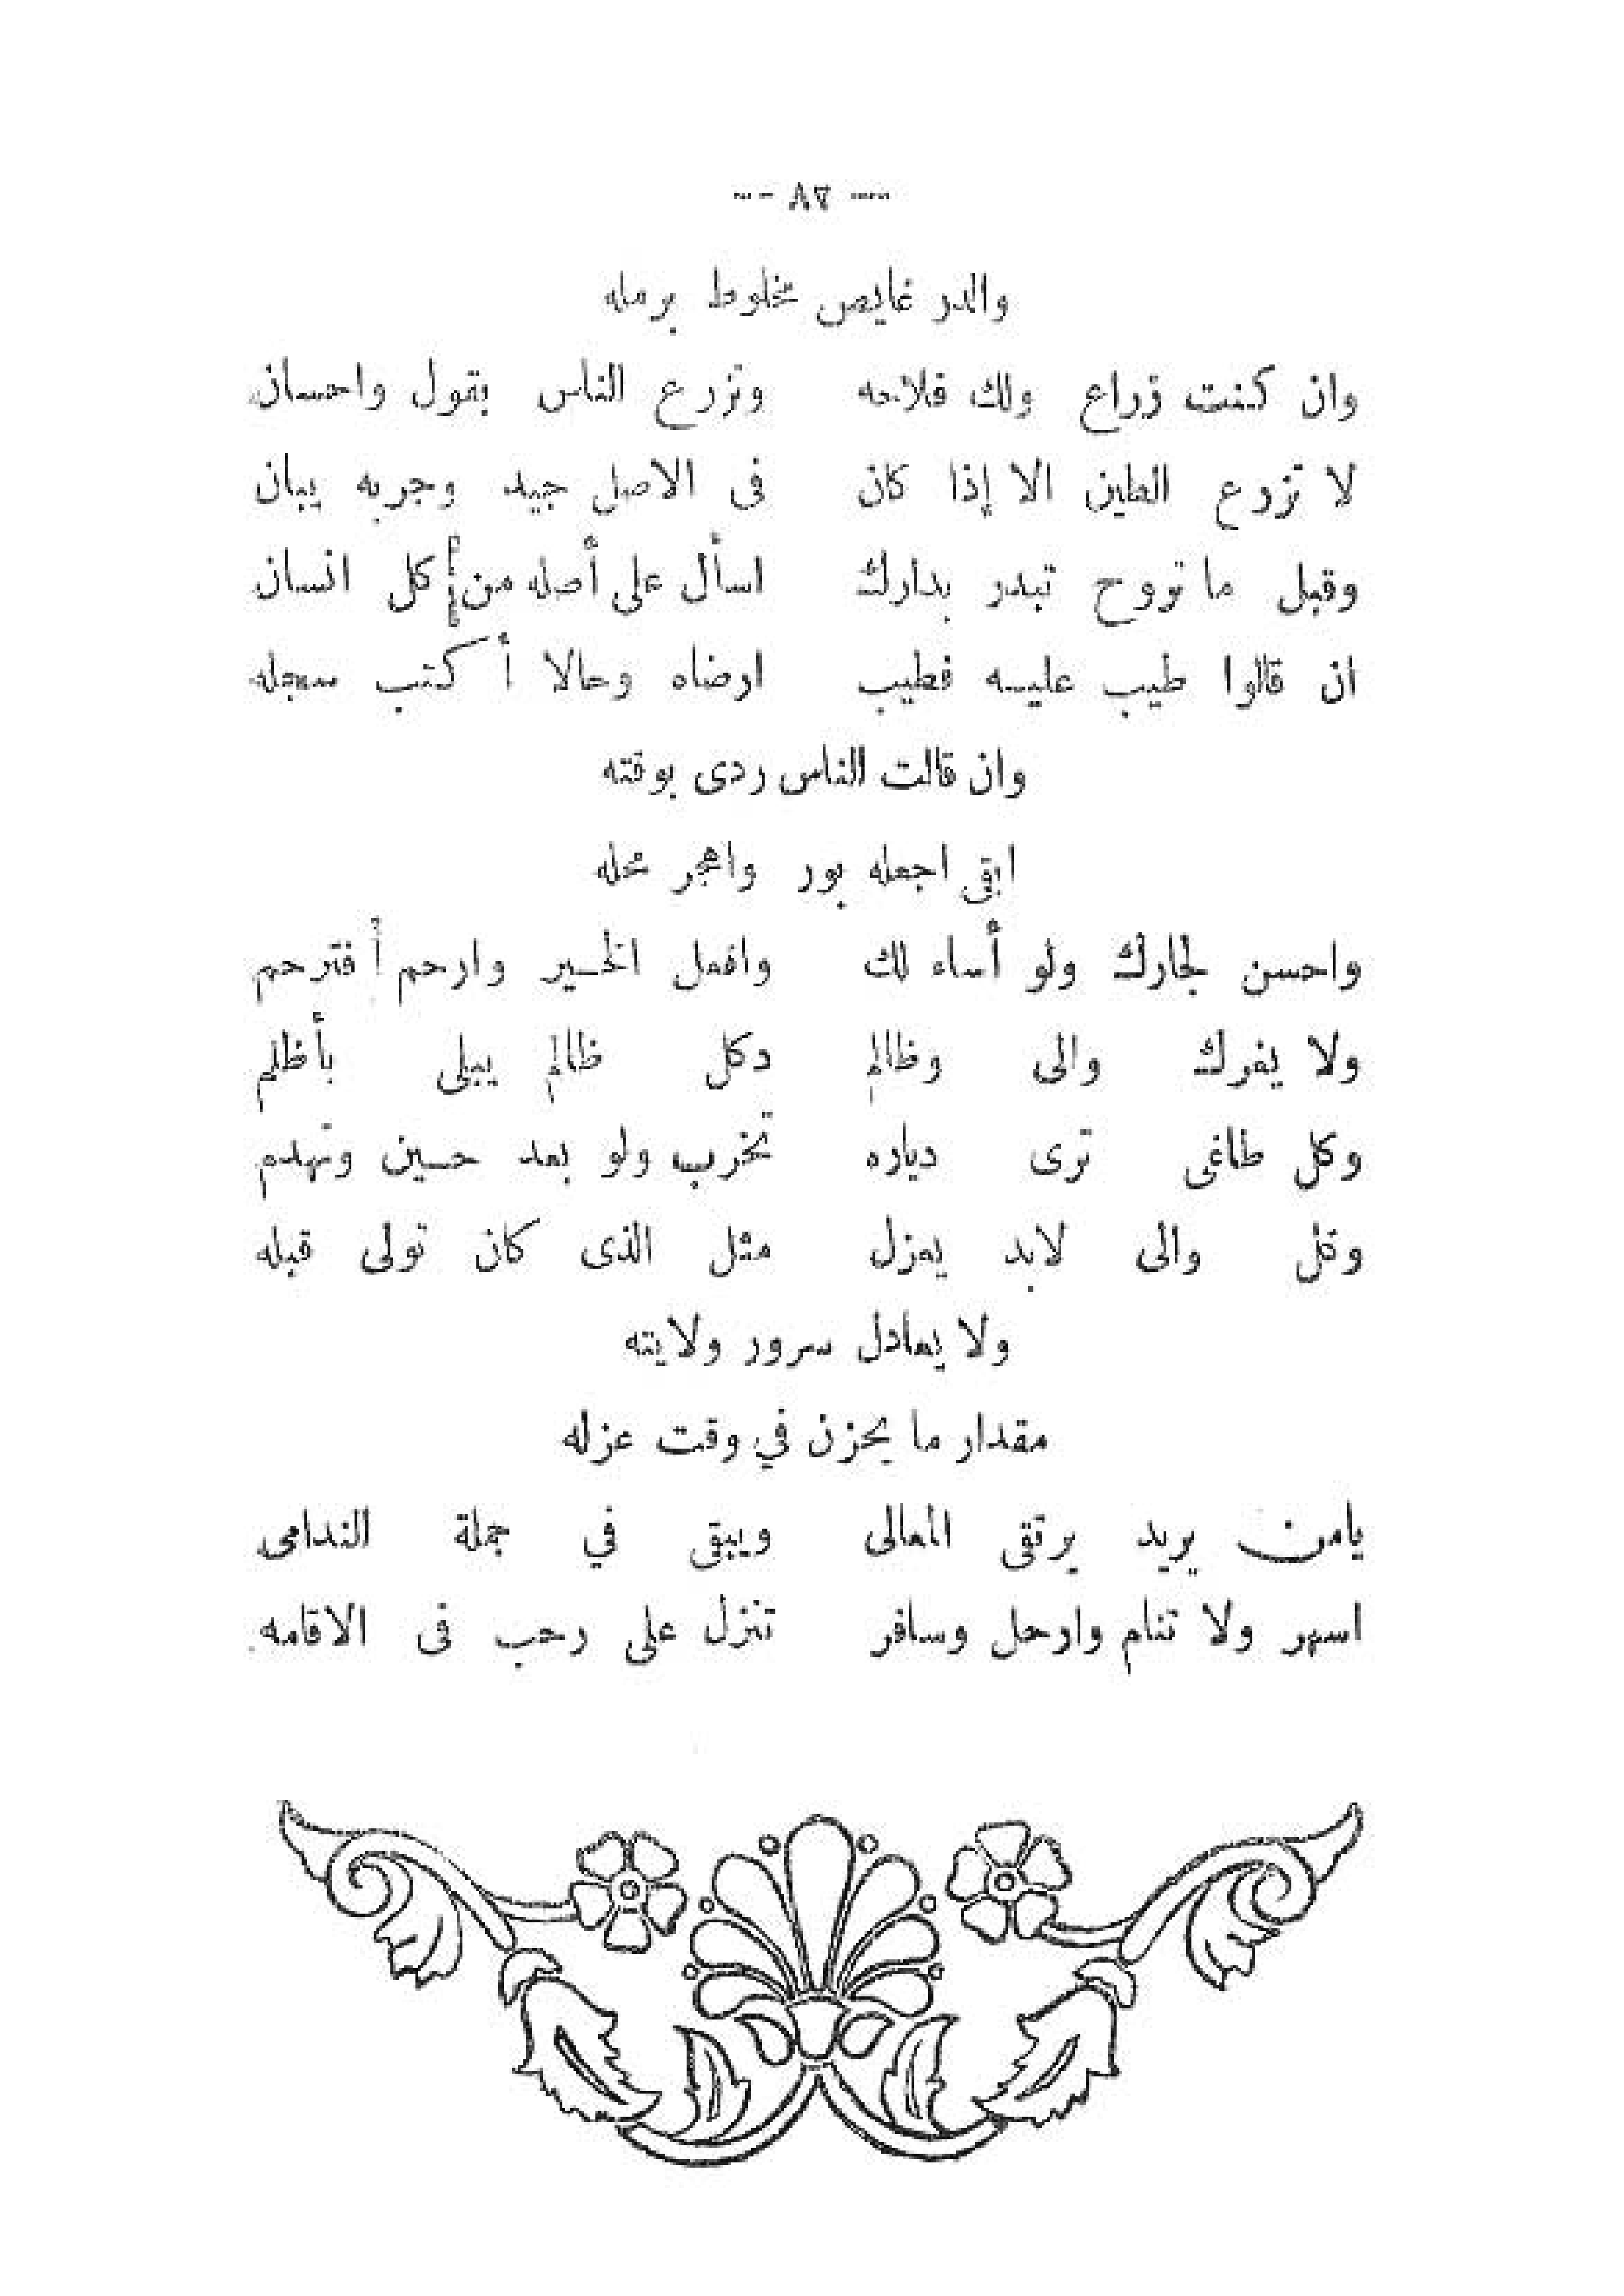 — ٨٣ —
والدر غايص مخلوط برمله
وان كنت زراع ولك فلاحه وتزرع الناس بقول واحسان
لا تزرع الطين الا إذا كان فى الاصل جيد وجربه يبان
وقبل ما تروح تبدر بدارك اسأل على أصله من كل انسان
ان قالوا طيب عليه فطيب ارضاه وحالا أكتب سجله
وان قالت الناس ردى بوقته
ابقى اجعله بور واهجر محله
واحسن لجارك ولو أساء لك وافعل الخير وارحم فترحم
ولا يغرك والى وظالم دكل ظالم يبلى بأظلم
وكل طاغى ترى دياره تخرب ولو بعد حين وتهدم
وكل والى لابد يعزل مثل الذى كان تولى قبله
ولا يعادل سرور ولايته
مقدار ما يحزن في وقت عزله
يامن يريد يرتقى المعالى ويبقى في جملة الندامى
اسهر ولا تنام وارحل وسافر تنزل على رحب فى الاقامه